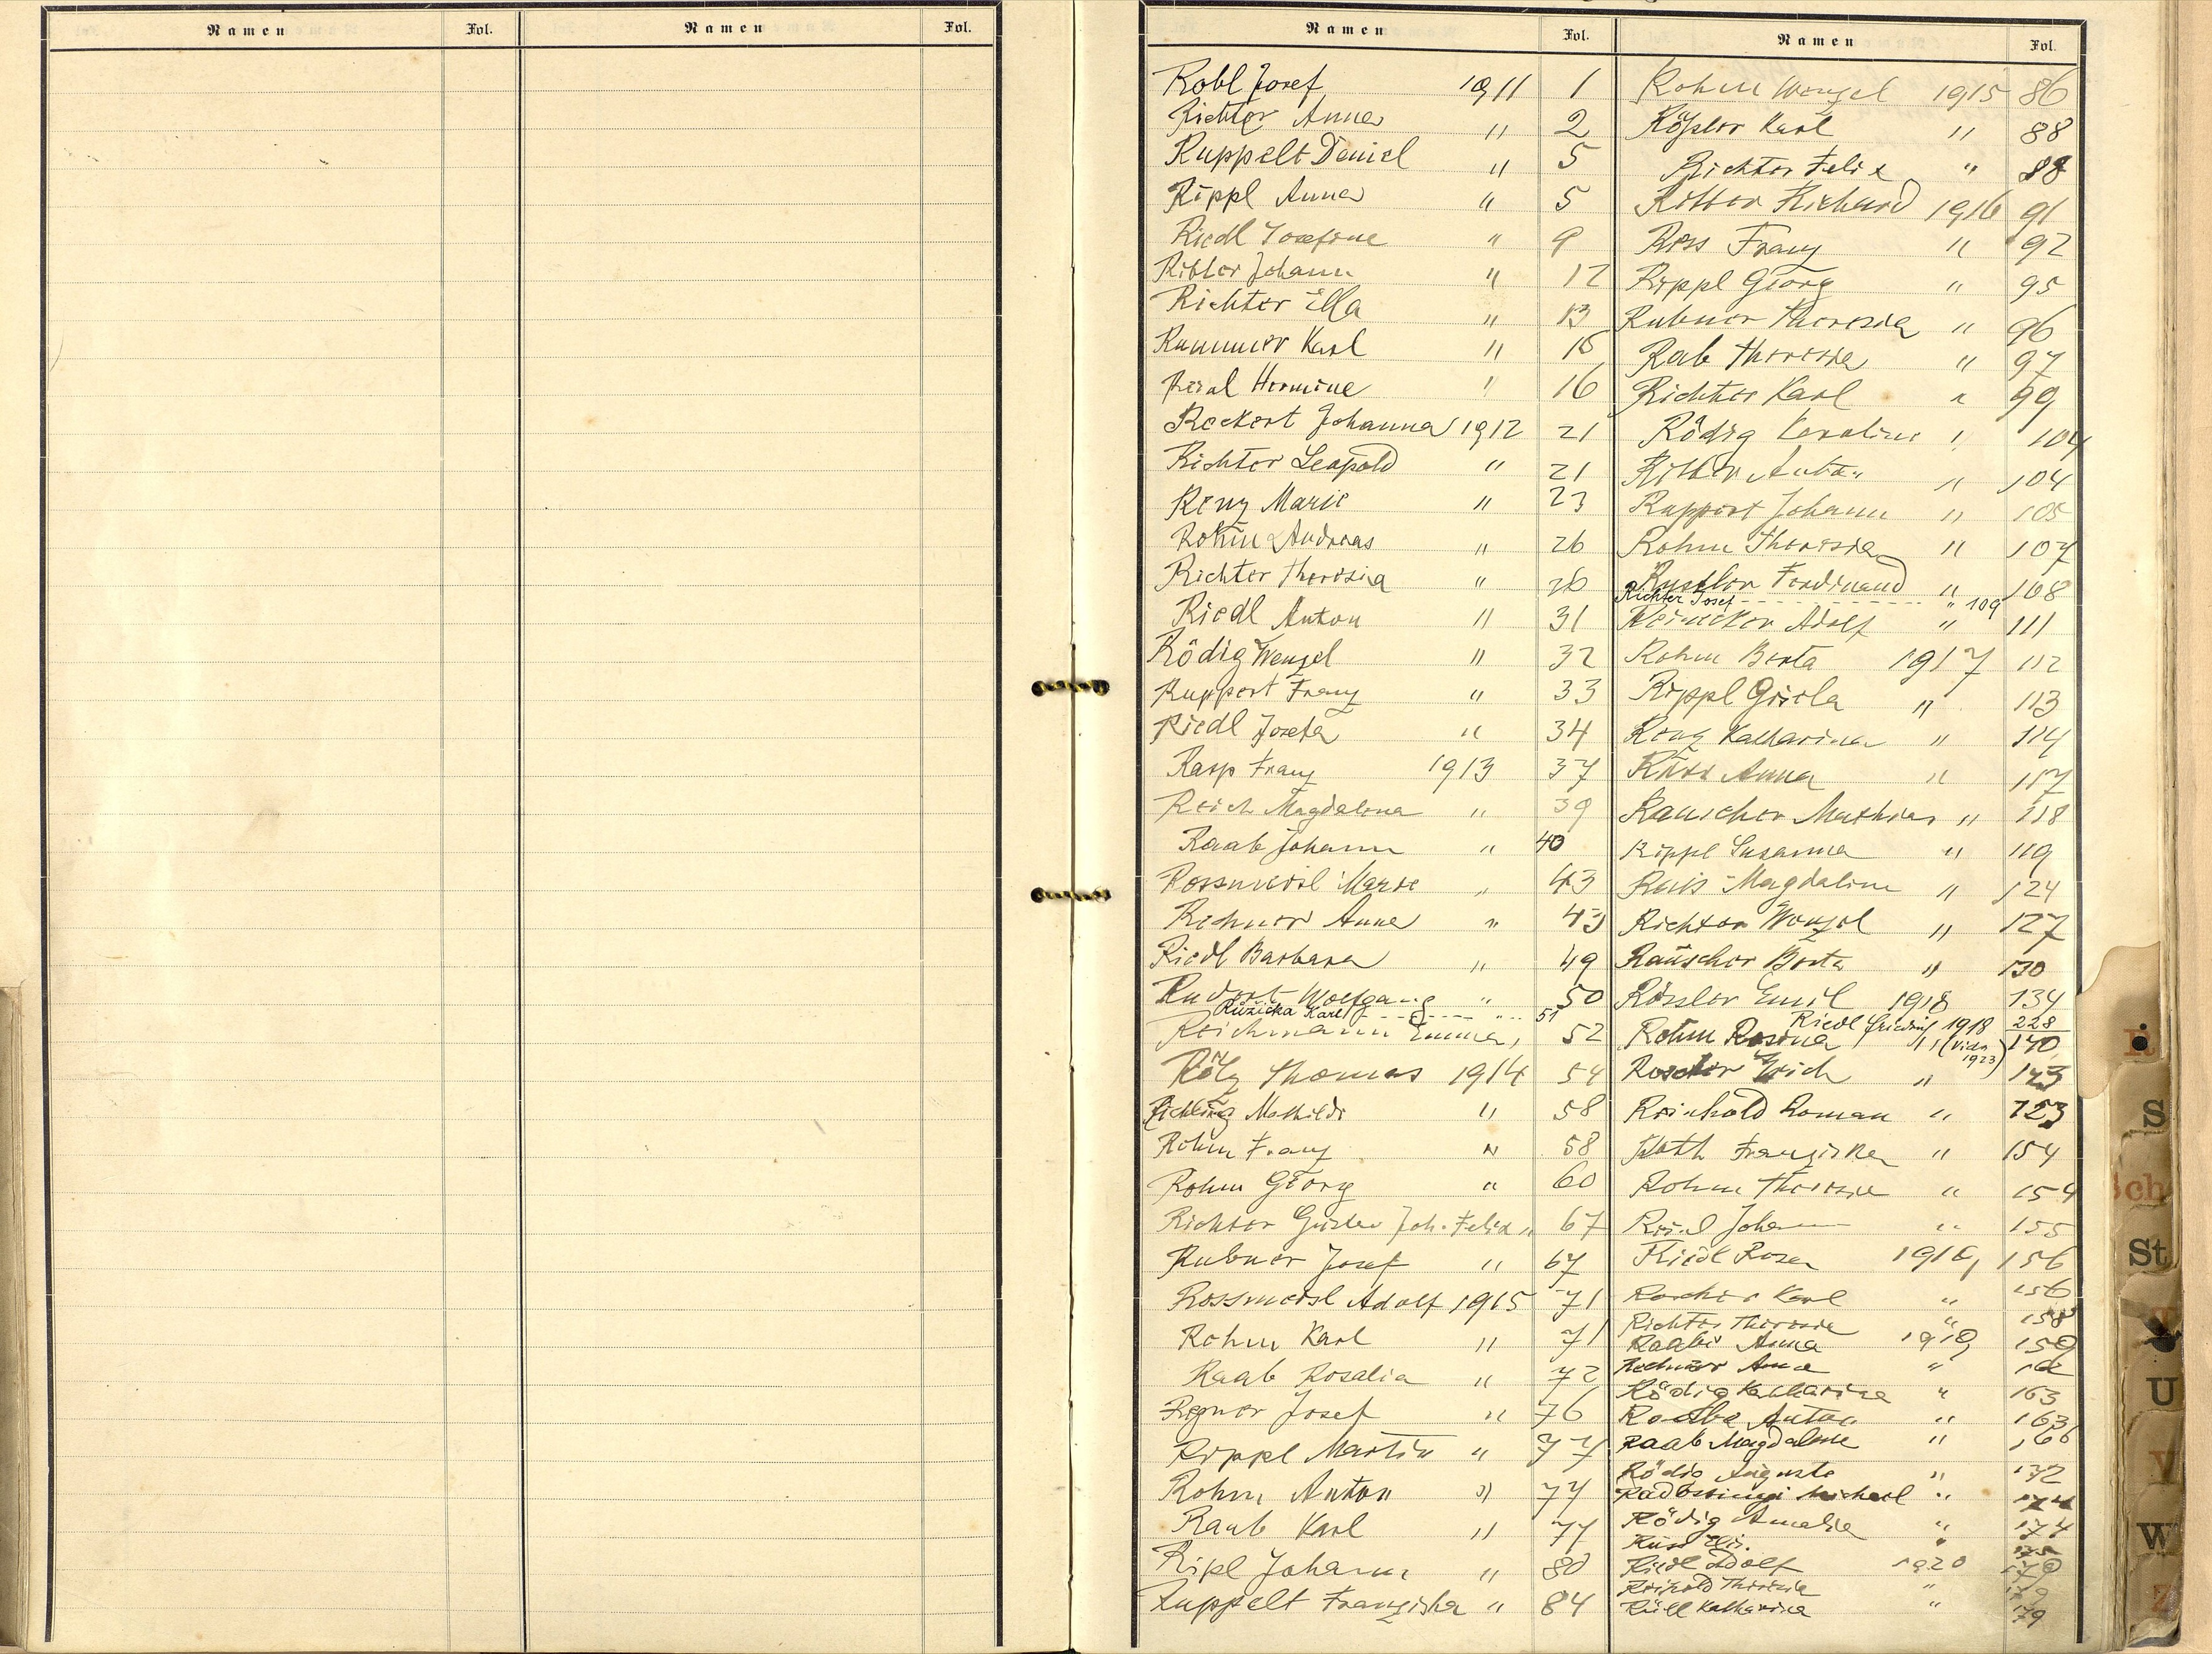 Namen Fol. Namen Fol.
Namen Fol. Namen Fol.
Robl Josef 1911 1
Richter Anna " 2
Ruppelt Daniel " 5
Rippl Anna " 5
Riedl Josefine " 9
Ritter Johann " 12
Richter Ella " 13
Rummer Karl " 15
Hermine " 16
Reckert Johanna 1912 21
Richter Leopold " 21
Renz Marie " 23
Rohm Andreas " 26
Richter Theresia " 26
Riedl Anton " 31
Rödig Wenzel " 32
Ruppert Franz " 33
Riedl Josefa " 34
Rasp Franz 1913 37
Reich Magdalena " 39
Raab Johann " 40
Rossmeisl Marie " 43
Rechner Anna " 43
Riedl Barbara " 49
Rudert Wolfgang " 50
Růžička Karl " 51
Reichmann Emma " 52
Rölz Thomas 1914 54
Richling Mathilde " 58
Rohm Franz " 58
Rohm Georg " 60
Richter Gustav Joh. Felix " 67
Rubner Josef " 67
Rossmeisl Adolf 1915 71
Rohm Karl " 71
Raab Rosalia " 72
Regner Josef " 76
Rippl Martin " 77
Rohm Anton " 77
Raab Karl " 77
Ripl Johann " 80
Ruppelt Franziska " 84
Rohm Wenzel 1915 86
Rößler Karl " 88
Richter Felix " 88
Ritter Richard 1916 91
Franz " 92
Rippl Georg " 95
Rubner Theresia " 96
Rab Theresia " 97
Richter Karl " 99
Rödig Karoline " 104
Ritter Anton " 104
Ruppert Johann " 105
Rohm Theresia " 107
Ferdinand " 108
Richter Josef " 109
Adolf " 111
Rohm Berta 1917 112
Rippl Gisela " 113
Renz Katharina " 114
Anna " 117
Rauscher Mathias " 118
Rippl Susanna " 119
Magdalena " 124
Richter Wenzel " 127
Rauscher Berta " 130
Rössler Emil 1918 134
Riedl 1918 228
Rohm Rosina " (1923) 140
Erich " 143
Reinhold Roman " 153
Roth Franziska " 154
Rohm Theresia " 154
Johann " 155
Riedl Rosa 156
Karl " 156
Richter Theresia " 158
Anna 1919 159
Rechner Anna "
Rödig Katharina " 163
Anton " 163
Raab Magdalene " 166
Rödig Auguste " 172
Michael "
Rödig Amalia " 174
Riedl Adolf 1920
Reinhold Theresia "
Katharina " 179
R
S
Sch
St
T
U
V
W
Z